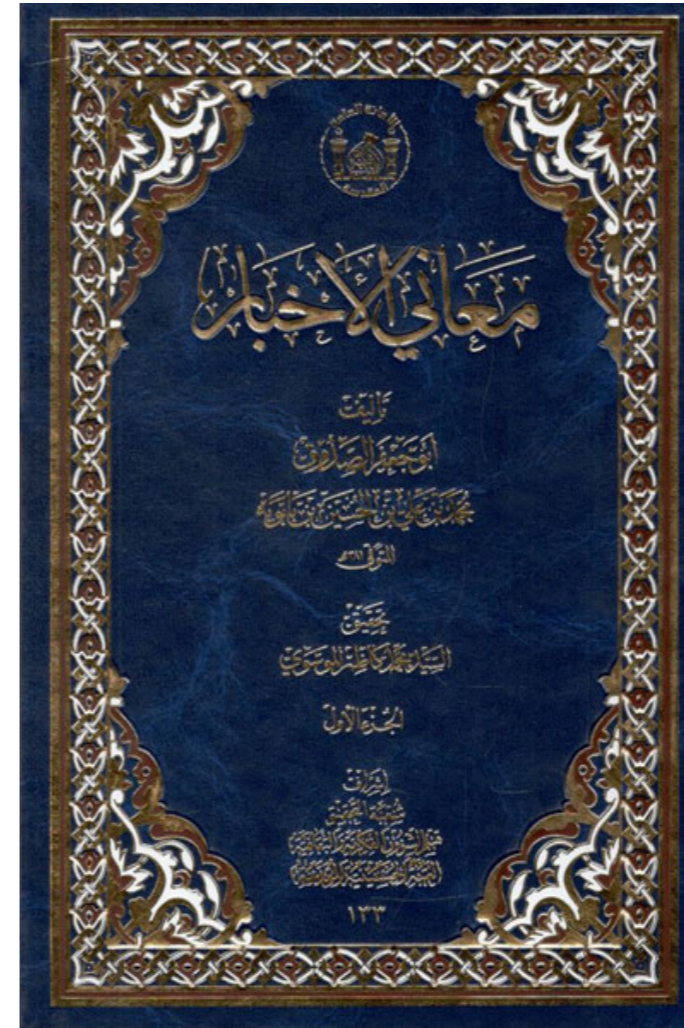 معاني الأخبار
تأليف
أبو جعفر الصدوق
محمد بن علي بن الحسين بن بابويه
المتوفى ٣٨١هـ
تحقيق
السيد محمد كاظم الموسوي
الجزء الأول
إشراف
شعبة التحقيق
قسم الشؤون الفكرية والثقافية
العتبة الحسينية المقدسة
١٣٣